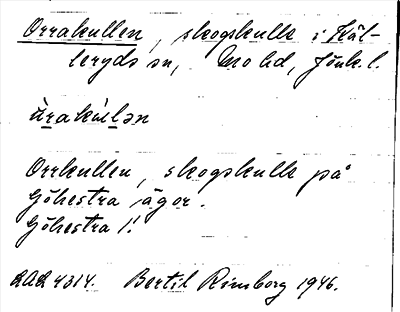 Orrakullen, skogskulle i Käl-
leryds sn, Mo hd, Jönk. l.
ùrakùlən
Orrkullen, skogskulle på
Göhestra ägor.
Göhestra 1:1
RAÄ 4314. Bertil Rimborg 1946.